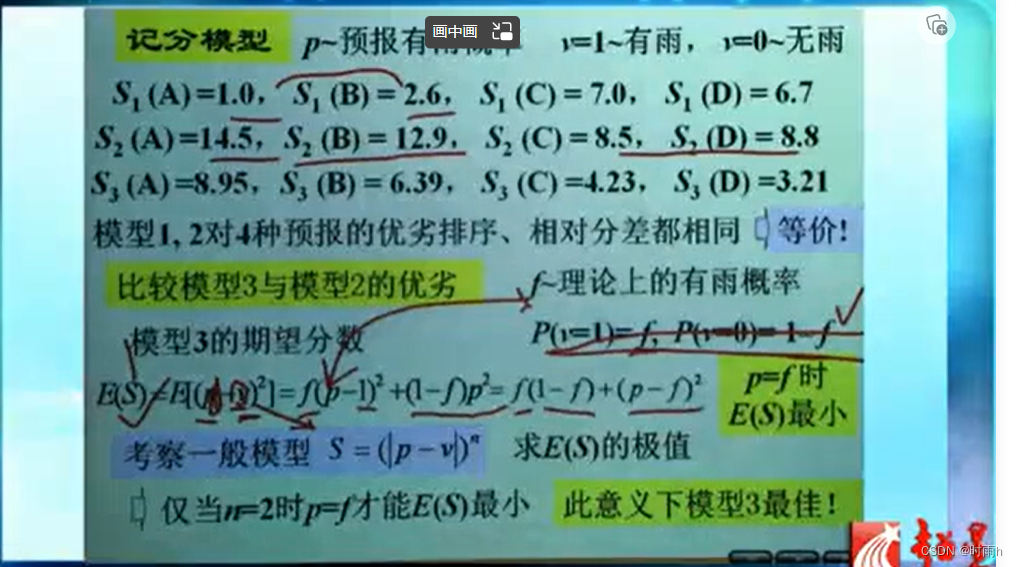 画中画
记分模型 p~预报有 v=1~有雨，v=0~无雨
S₁ (A) =1.0， S₁ (B) = 2.6， S₁ (C) = 7.0， S₁ (D) = 6.7
S₂ (A) =14.5， S₂ (B) = 12.9， S₂ (C) = 8.5， S₂ (D) = 8.8
S₃ (A) =8.95， S₃ (B) = 6.39， S₃ (C) =4.23， S₃ (D) =3.21
模型1, 2对4种预报的优劣排序、相对分差都相同 等价!
比较模型3与模型2的优劣 f~理论上的有雨概率
模型3的期望分数 P(v=1)= f, P(v=0)= 1- f
E(S) =E[( )²]= f(p−1)² +(1−f)p²= f(1−f)+(p−f)²
p=f 时
E(S)最小
考察一般模型 S = (|p − v|)ⁿ 求E(S)的极值
仅当n=2时p=f才能E(S)最小 此意义下模型3最佳！
CSDN @时雨h